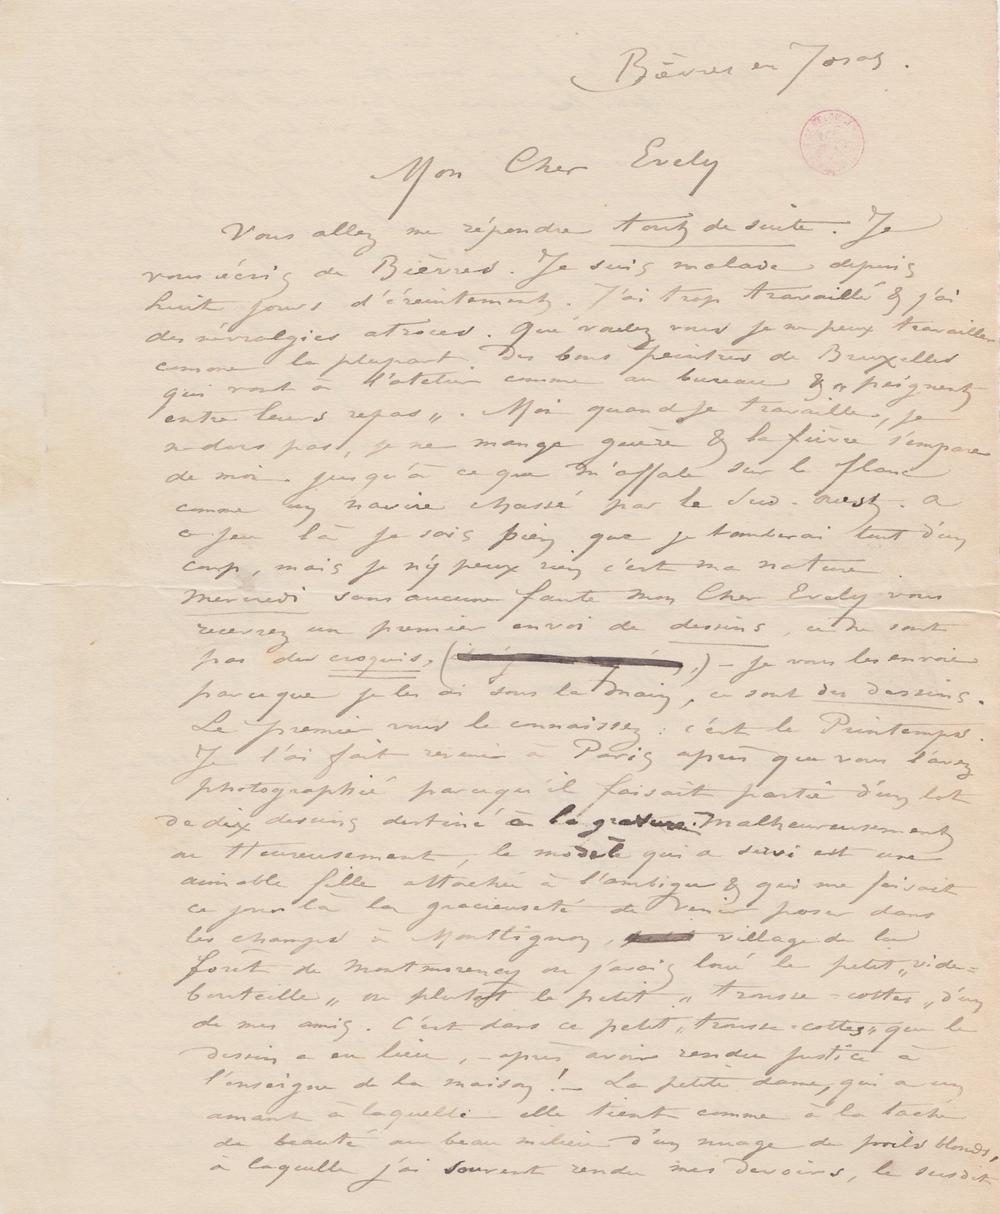 Bièvres en Josas.
Mon Cher Evely
Vous allez me répondre tout de suite. Je
vous écris de Bièvres. Je suis malade depuis
huit jours d'éreintement. J'ai trop travaillé & j'ai
des névralgies atroces. Que voulez vous je ne peux travailler
comme la plupart des bons peintres de Bruxelles
qui vont à l'atelier comme au bureau & „peignent
entre leurs repas„. Moi quand je travaille, je
ne dors pas, je ne mange guère & la fièvre s'empare
de moi jusqu'à ce que m'affale sur le flanc
comme un navire chassé par le Sud-ouest. a
ce jeu là je sais bien que je tomberai tout d'un
coup, mais je n'y peux rien c'est ma nature
Mercredi sans aucune faute mon Cher Evely vous
recevrez un premier envoi de dessins, ce ne sont
pas des croquis, ( ) - je vous les envoie
parceque je les ai sous la main, ce sont des dessins.
Le premier vous le connaissez: c'est le Printemps.
Je l'ai fait revenir à Paris après que vous l'avez
photographié parcequ'il faisait partie d'un lot
de dix dessins destiné à la gravure. Malheureusement
ou Heureusement, le modèle qui a servi est une
aimable fille attachée à l'ambigu & qui me faisait
ce jour là la gracieuseté de venir poser dans
les champs à Montlignon, village de la
forêt de Montmorency ou j'avais loué le petit „vide=
bouteille„ ou plutot le petit „trousse=cottes„ d'un
de mes amis. C'est dans ce petit „trousse-cottes„ que le
dessin a eu lieu, - après avoir rendu justice à
l'enseigne de la maison! - La petite dame, qui a un
amant à laquelle elle tient comme à la tache
de beauté au beau milieu d'un nuage de poils blonds,
à laquelle j'ai souvent rendu mes devoirs, le susdit